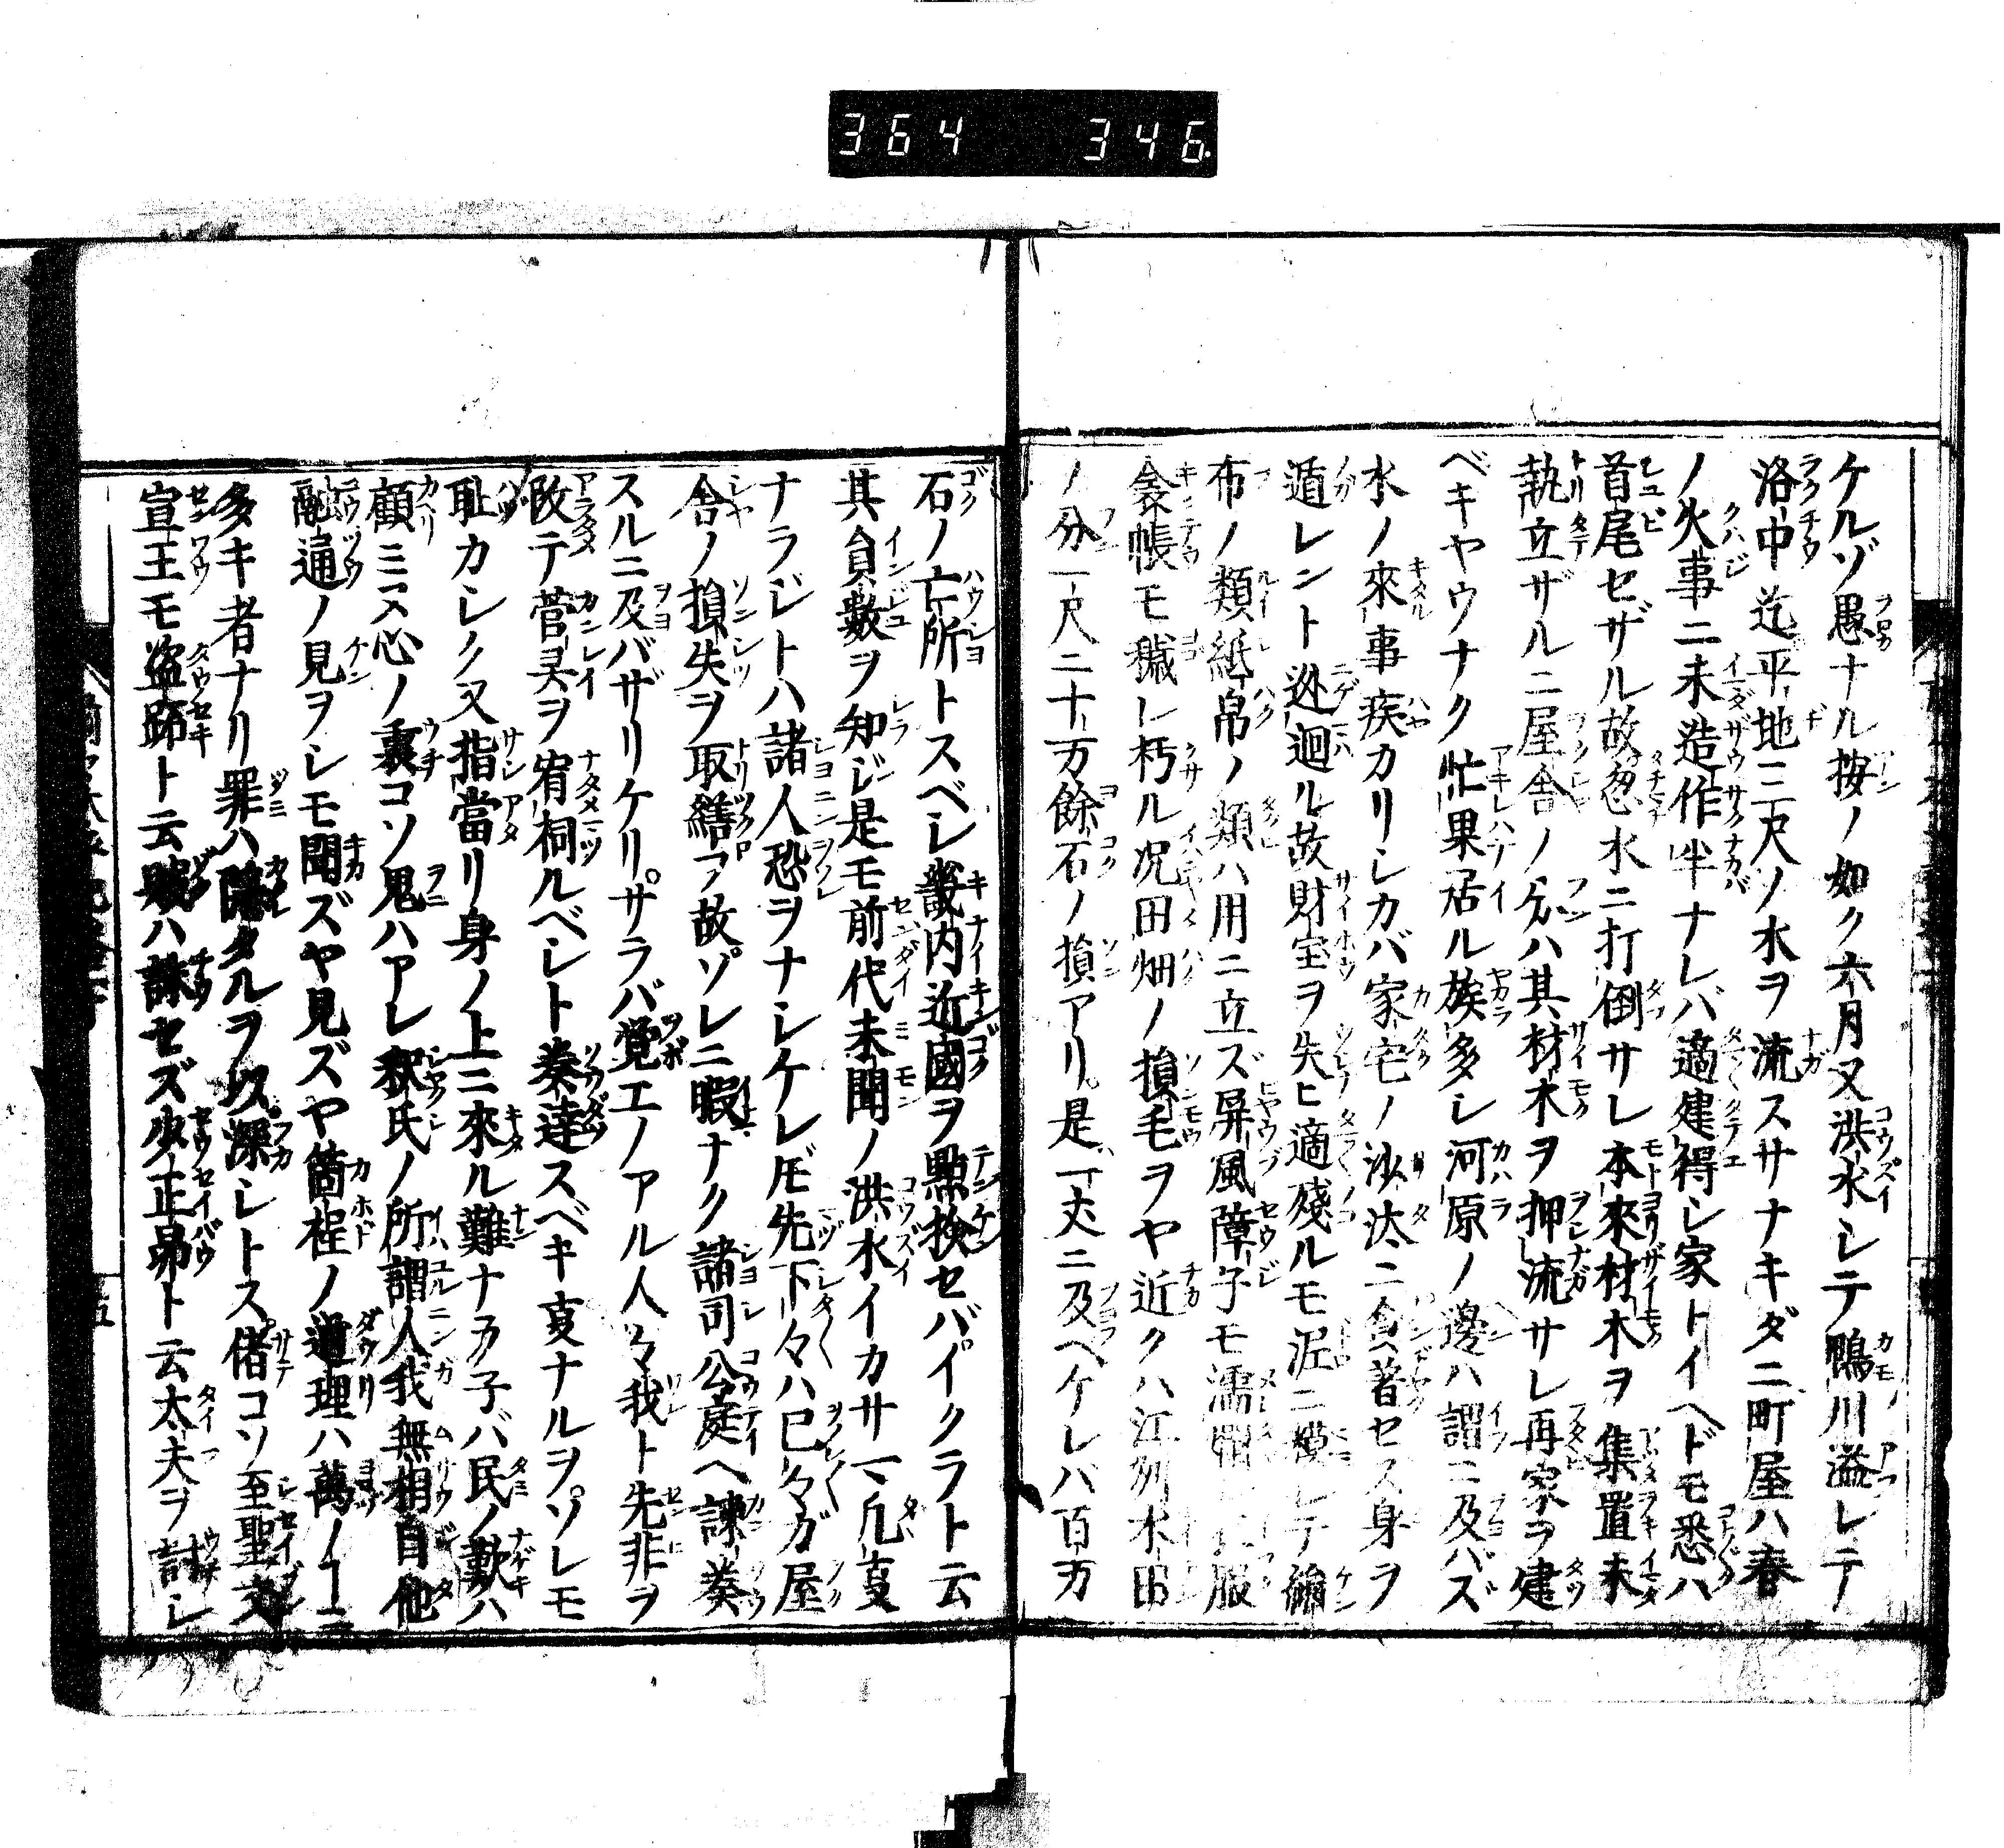 364 346
ケルゾ愚ナル按ノ如ク六月又洪水シテ鴨川溢レテ
洛中迄平地三尺ノ水ヲ流スサナキダニ町屋ハ春
ノ火事ニ未造作半ナレバ適建得シ家トイヘドモ悉ハ
首尾セザル故忽水ニ打倒サレ本來材木ヲ集置未
執立ザルニ屋舎ノ分ハ其材木ヲ押流サレ再家ヲ建
ベキヤウナク忙果居ル族多シ河原ノ邊ハ謂ニ及バズ
水ノ來事疾カリシカバ家宅ノ沙汰ニ貪著セス身ヲ
遁レント逃迴ル故財宝ヲ失ヒ適殘ルモ泥ニ塗レテ絹
布ノ類紙帛ノ類ハ用ニ立ズ屏風障子モ濡 服
衾帳モ穢レ朽ル况田畑ノ損毛ヲヤ近クハ江列水田
ノ分一尺ニ十万餘石ノ損アリ是一丈ニ及ヘケレバ百万
石ノ亡所トスベシ畿内近國ヲ點撿セバイクラト云
其貟數ヲ知ジ是モ前代未聞ノ洪水イカサマ凡叓
ナラジト八諸人恐ヲナシケレ𪜈先下々ハ已々ガ屋
舎ノ損失ヲ取繕フ故ソレニ暇ナク諸司公庭ヘ諫奏
スルニ及バザリケリサラバ覚エノアル人々我ト先非ヲ
改テ菅灵ヲ宥祠ルベシト奏達スベキ叓ナルヲソレモ
耻カシク又指當リ身ノ上ニ來ル難ナラ子バ民ノ歎ハ
顧ミヌ心ノ裏コソ鬼ハアレ釈氏ノ所謂人我無相自他
融通ノ見ヲシモ聞ズヤ見ズヤ箇程ノ道理ハ萬ノヿニ
多キ者ナリ罪ハ隠タルヲ以深シトス偖コソ至聖文
宣王モ盗跖ト云賊ハ誅セズ少正昴ト云太夫ヲ討シ